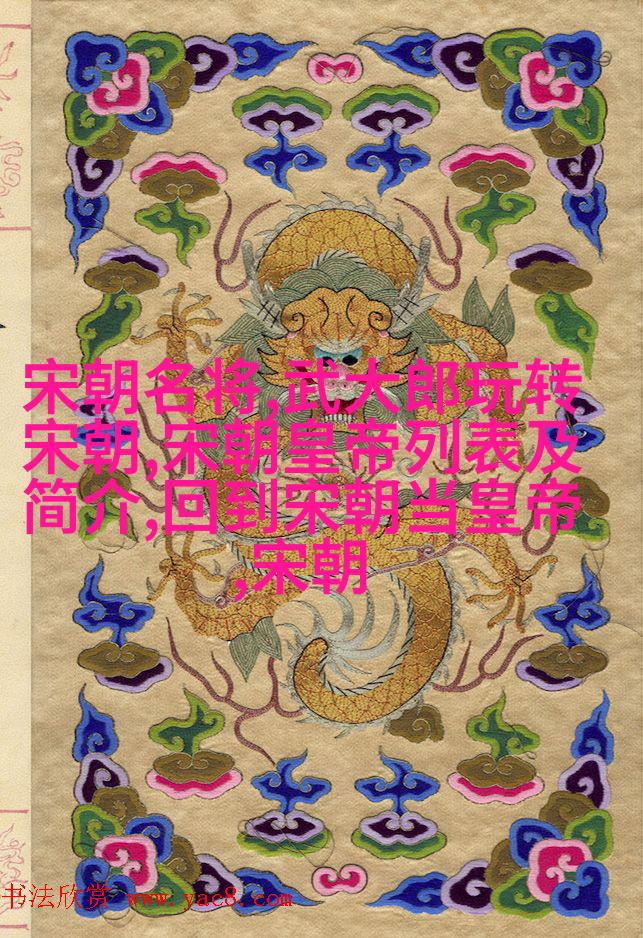 宋朝名将,武大郎玩转
宋朝,宋朝皇帝列表及
简介,回到宋朝当皇帝
,宋朝
书法欣赏 www.yac8.com